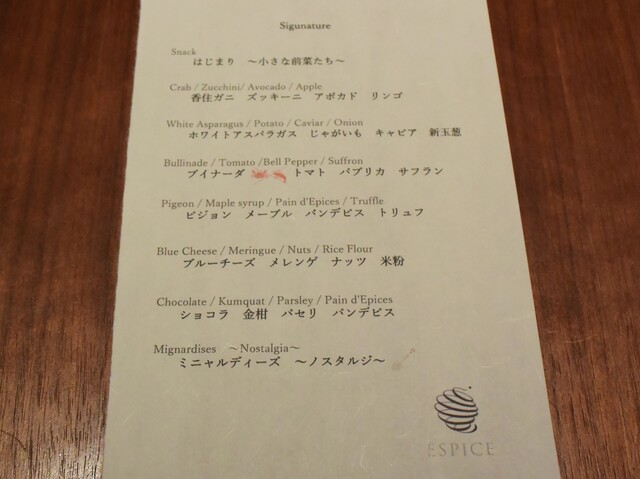 Sigunature
Snack
はじまり ～小さな前菜たち～
Crab / Zucchini/ Avocado / Apple
香住ガニ ズッキーニ アボカド リンゴ
White Asparagus / Potato / Caviar / Onion
ホワイトアスパラガス じゃがいも キャビア 新玉葱
Bullinade / Tomato /Bell Pepper / Suffron
ブイナーダ トマト パプリカ サフラン
Pigeon / Maple syrup / Pain d'Epices / Truffle
ピジョン メープル パンデピス トリュフ
Blue Cheese / Meringue / Nuts / Rice Flour
ブルーチーズ メレンゲ ナッツ 米粉
Chocolate / Kumquat / Parsley / Pain d'Epices
ショコラ 金柑 パセリ パンデピス
Mignardises ～Nostalgia～
ミニャルディーズ ～ノスタルジ～
ESPICE